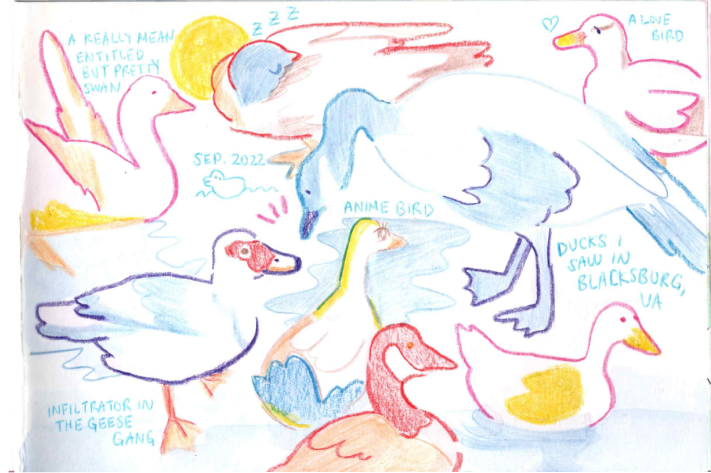 A REALLY MEAN
ENTITLED
BUT PRETTY
SWAN
Z Z Z
A LOVE
BIRD
SEP. 2022
ANIME BIRD
DUCKS I
SAW IN
BLACKSBURG,
VA
INFILTRATOR IN
THE GEESE
GANG